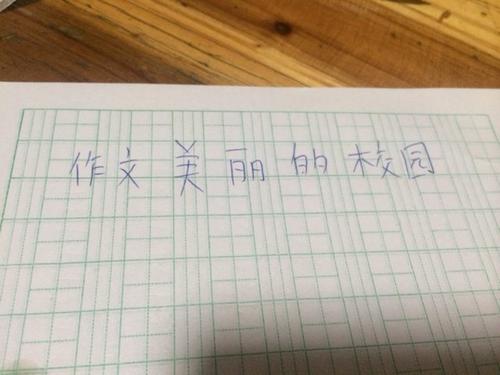 作文美丽的校园